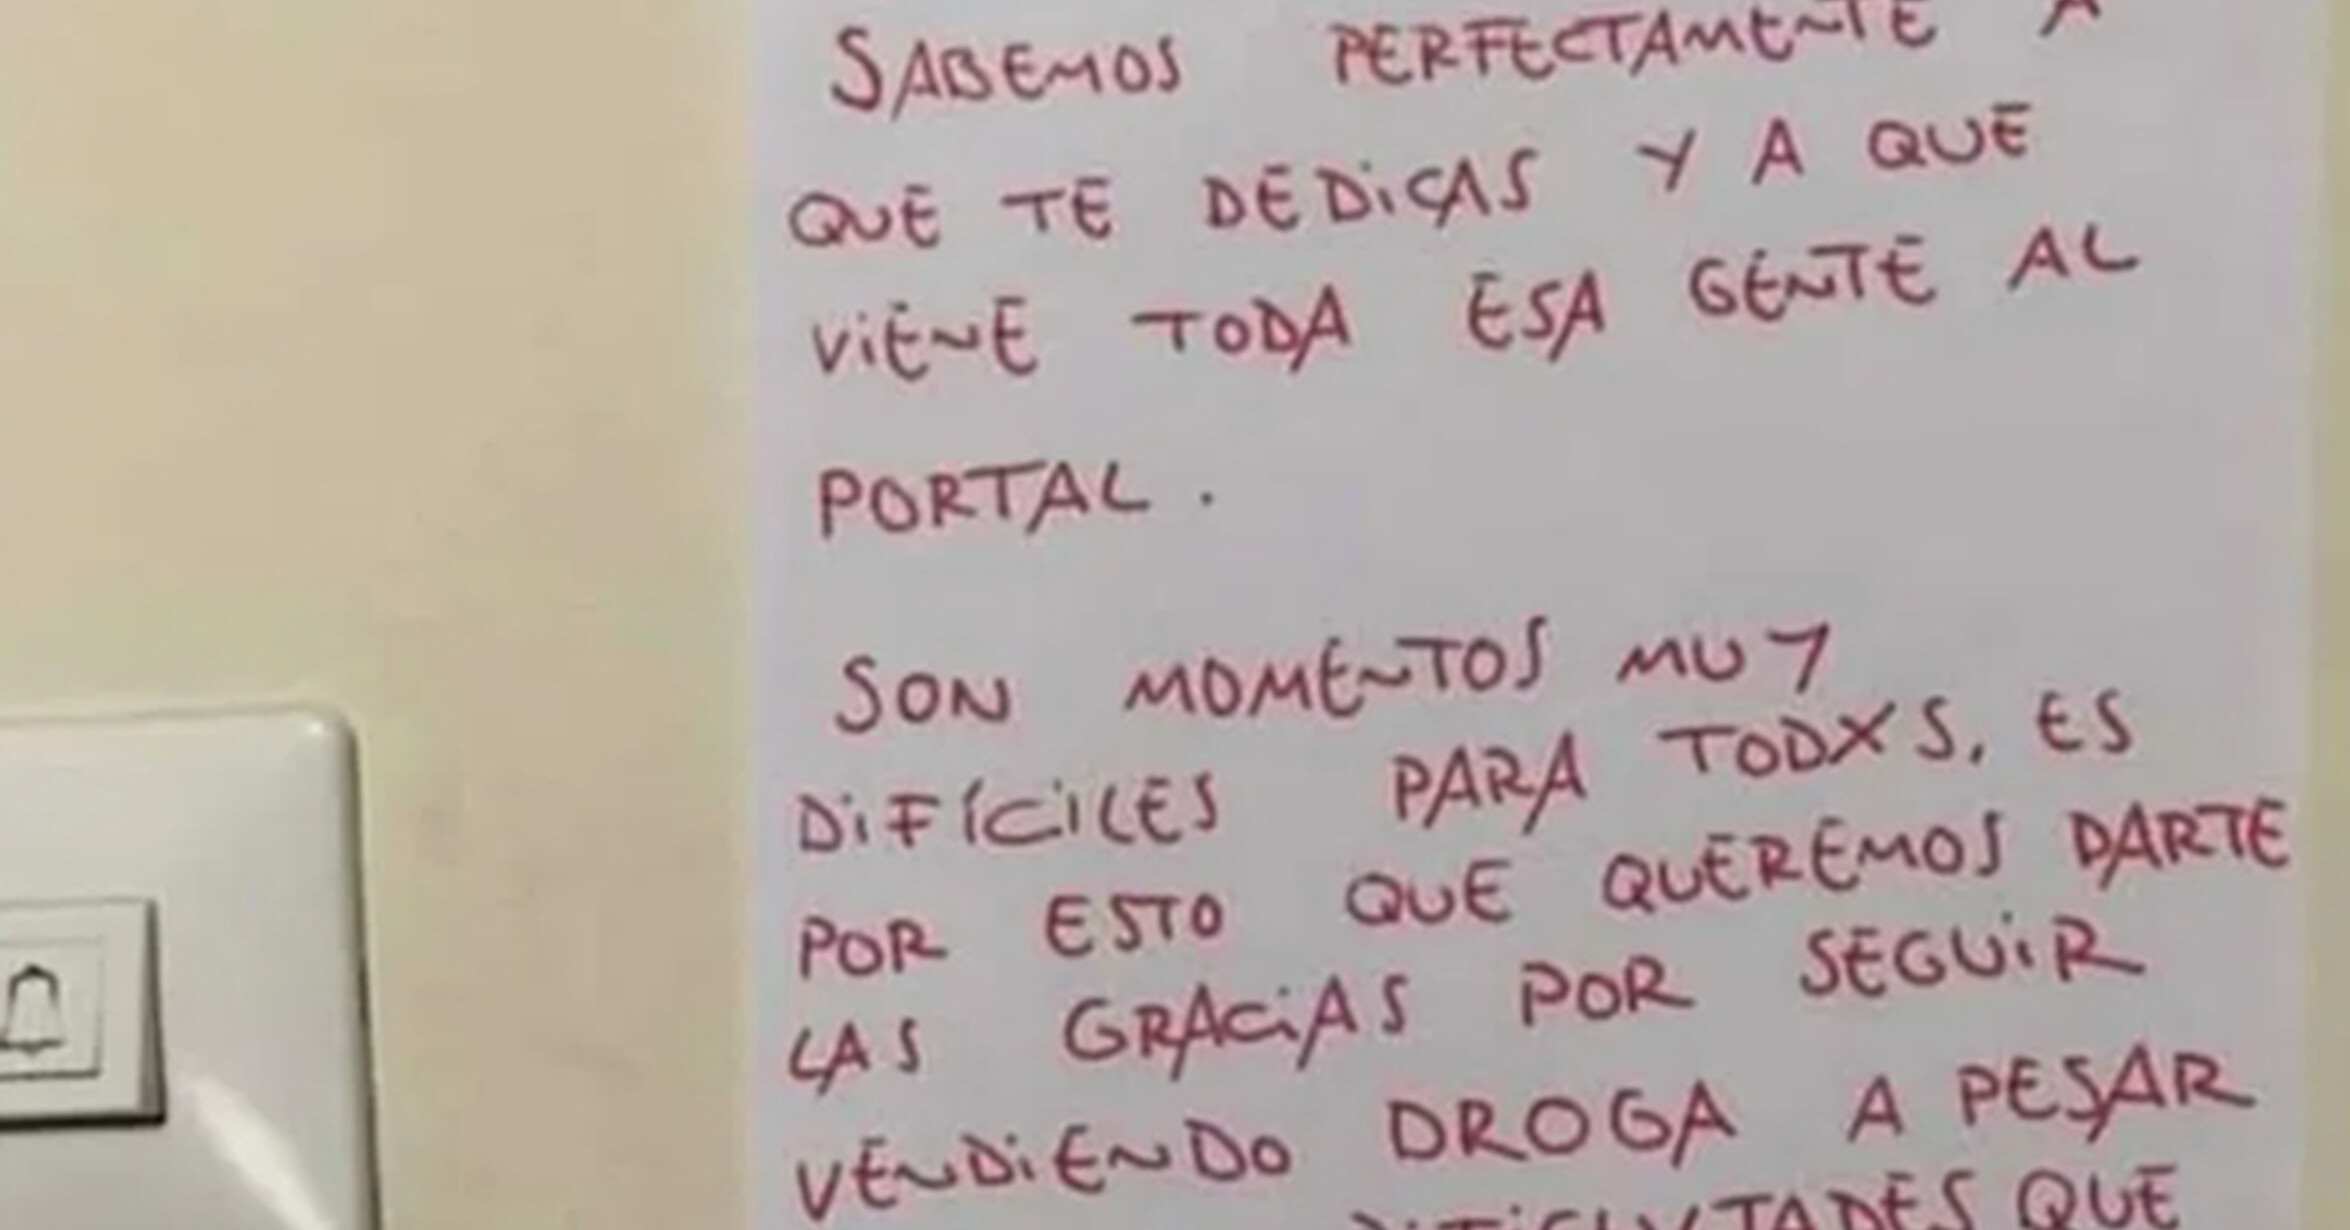 SABEMOS PERFECTAMENTE A
QUE TE DEDICAS Y A QUE
VIENE TODA ESA GENTE AL
PORTAL.
SON MOMENTOS MUY
DIFÍCILES PARA TODXS. ES
POR ESTO QUE QUEREMOS DARTE
LAS GRACIAS POR SEGUIR
VENDIENDO DROGA A PESAR
DIFICULTADES QUE